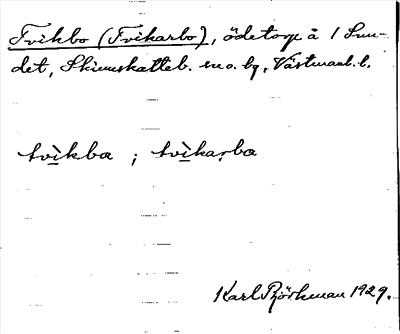 Tvikbo (Tvikarbo), ödetorp å 1 Sun-
det, Skinnskatteb. sn o. bg, Västmanl. l.
tvìkbα ; tvìkarbα
Karl Björkman 1929.